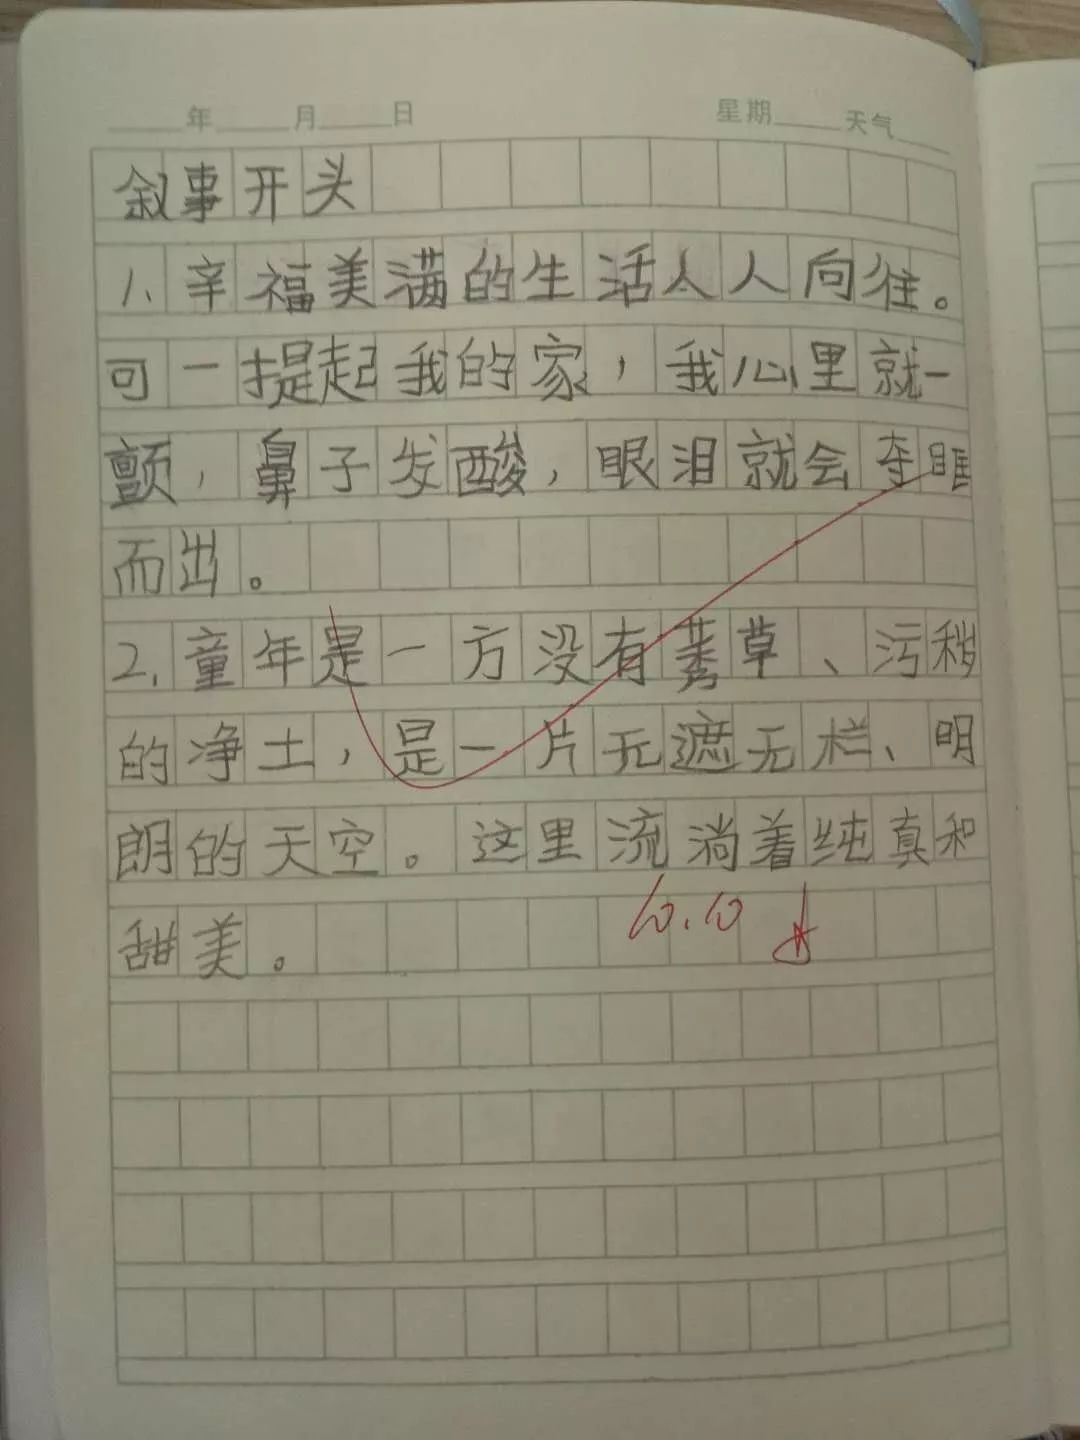 年 月 日 星期 天气
叙事开头
1、辛福美满的生活人人向往。
可一提起我的家，我心里就一
颤，鼻子发酸，眼泪就会夺眶
而出。
2.童年是一方没有莠草、污秽
的净土，是一片无遮无栏、明
朗的天空。这里流淌着纯真和
甜美。
10.10